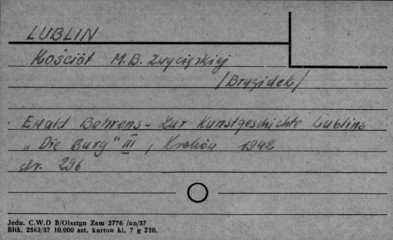 LUBLIN
Kościół M.B. Zwycięskiej
/Brygidek/
Ewald Behrens - Zur Kunstgeschichte Lublins
"Die Burg" III, Krakau 1942
nr. 296
Jedn. C.W.D B/Olsztyn Zam 2776 /on/57
Bltk. 2563/57 10.000 szt. karton kl. 7 g 220.